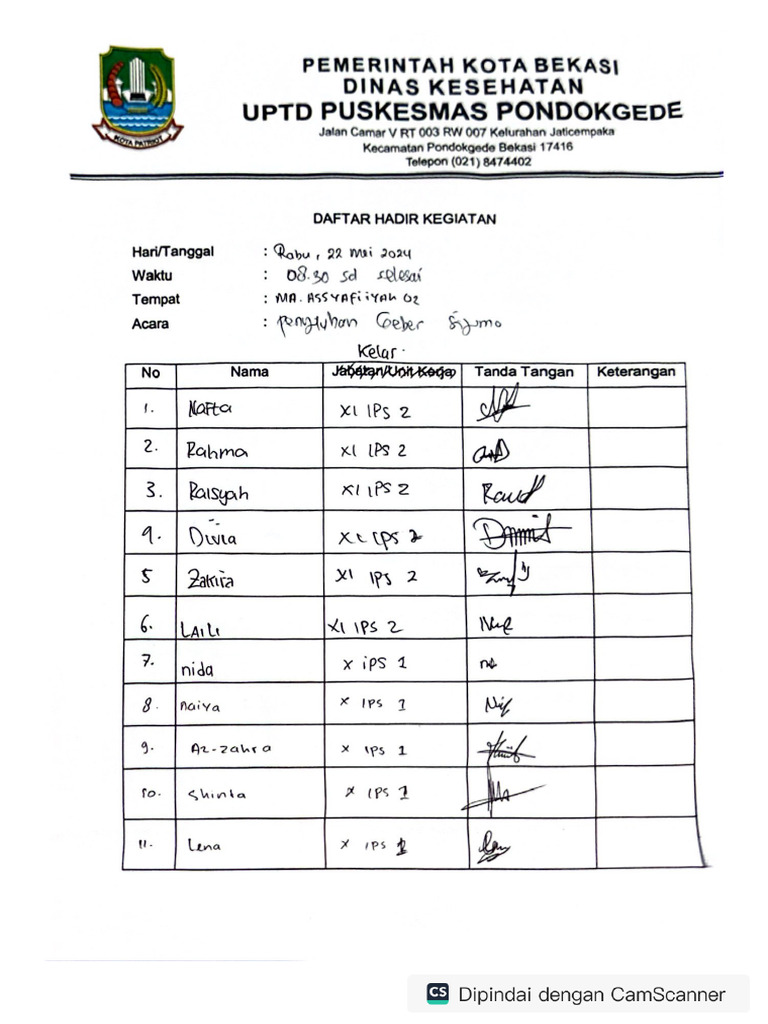 KOTA PATRIOT
PEMERINTAH KOTA BEKASI
DINAS KESEHATAN
UPTD PUSKESMAS PONDOKGEDE
Jalan Camar V RT 003 RW 007 Kelurahan Jaticempaka
Kecamatan Pondokgede Bekasi 17416
Telepon (021) 8474402
DAFTAR HADIR KEGIATAN
Hari/Tanggal : Rabu, 22 Mei 2024
Waktu : 08.30 sd selesai
Tempat : MA. ASSYAFiiYAH 02
Acara :
Kelas.
No Nama Jabatan/Unit Kerja Tanda Tangan Keterangan
1. Nafta XI IPS 2
2. Rahma XI IPS 2
3. Raisyah XI IPS 2
4. Divia XI IPS 2
5 Zakira XI IPS 2
6. LAILI XI IPS 2
7. nida X iPS 1
8. naiya X IPS 1
9. Az-zahra X IPS 1
10. Shinta X IPS 1
11. Lena X IPS 1
CS Dipindai dengan CamScanner